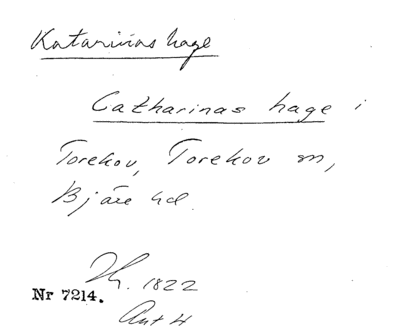 Katarinas hage
Catharinas hage i
Torekov, Torekov sn,
Bjäre hd.
1822
Nr 7214.
Ant 4